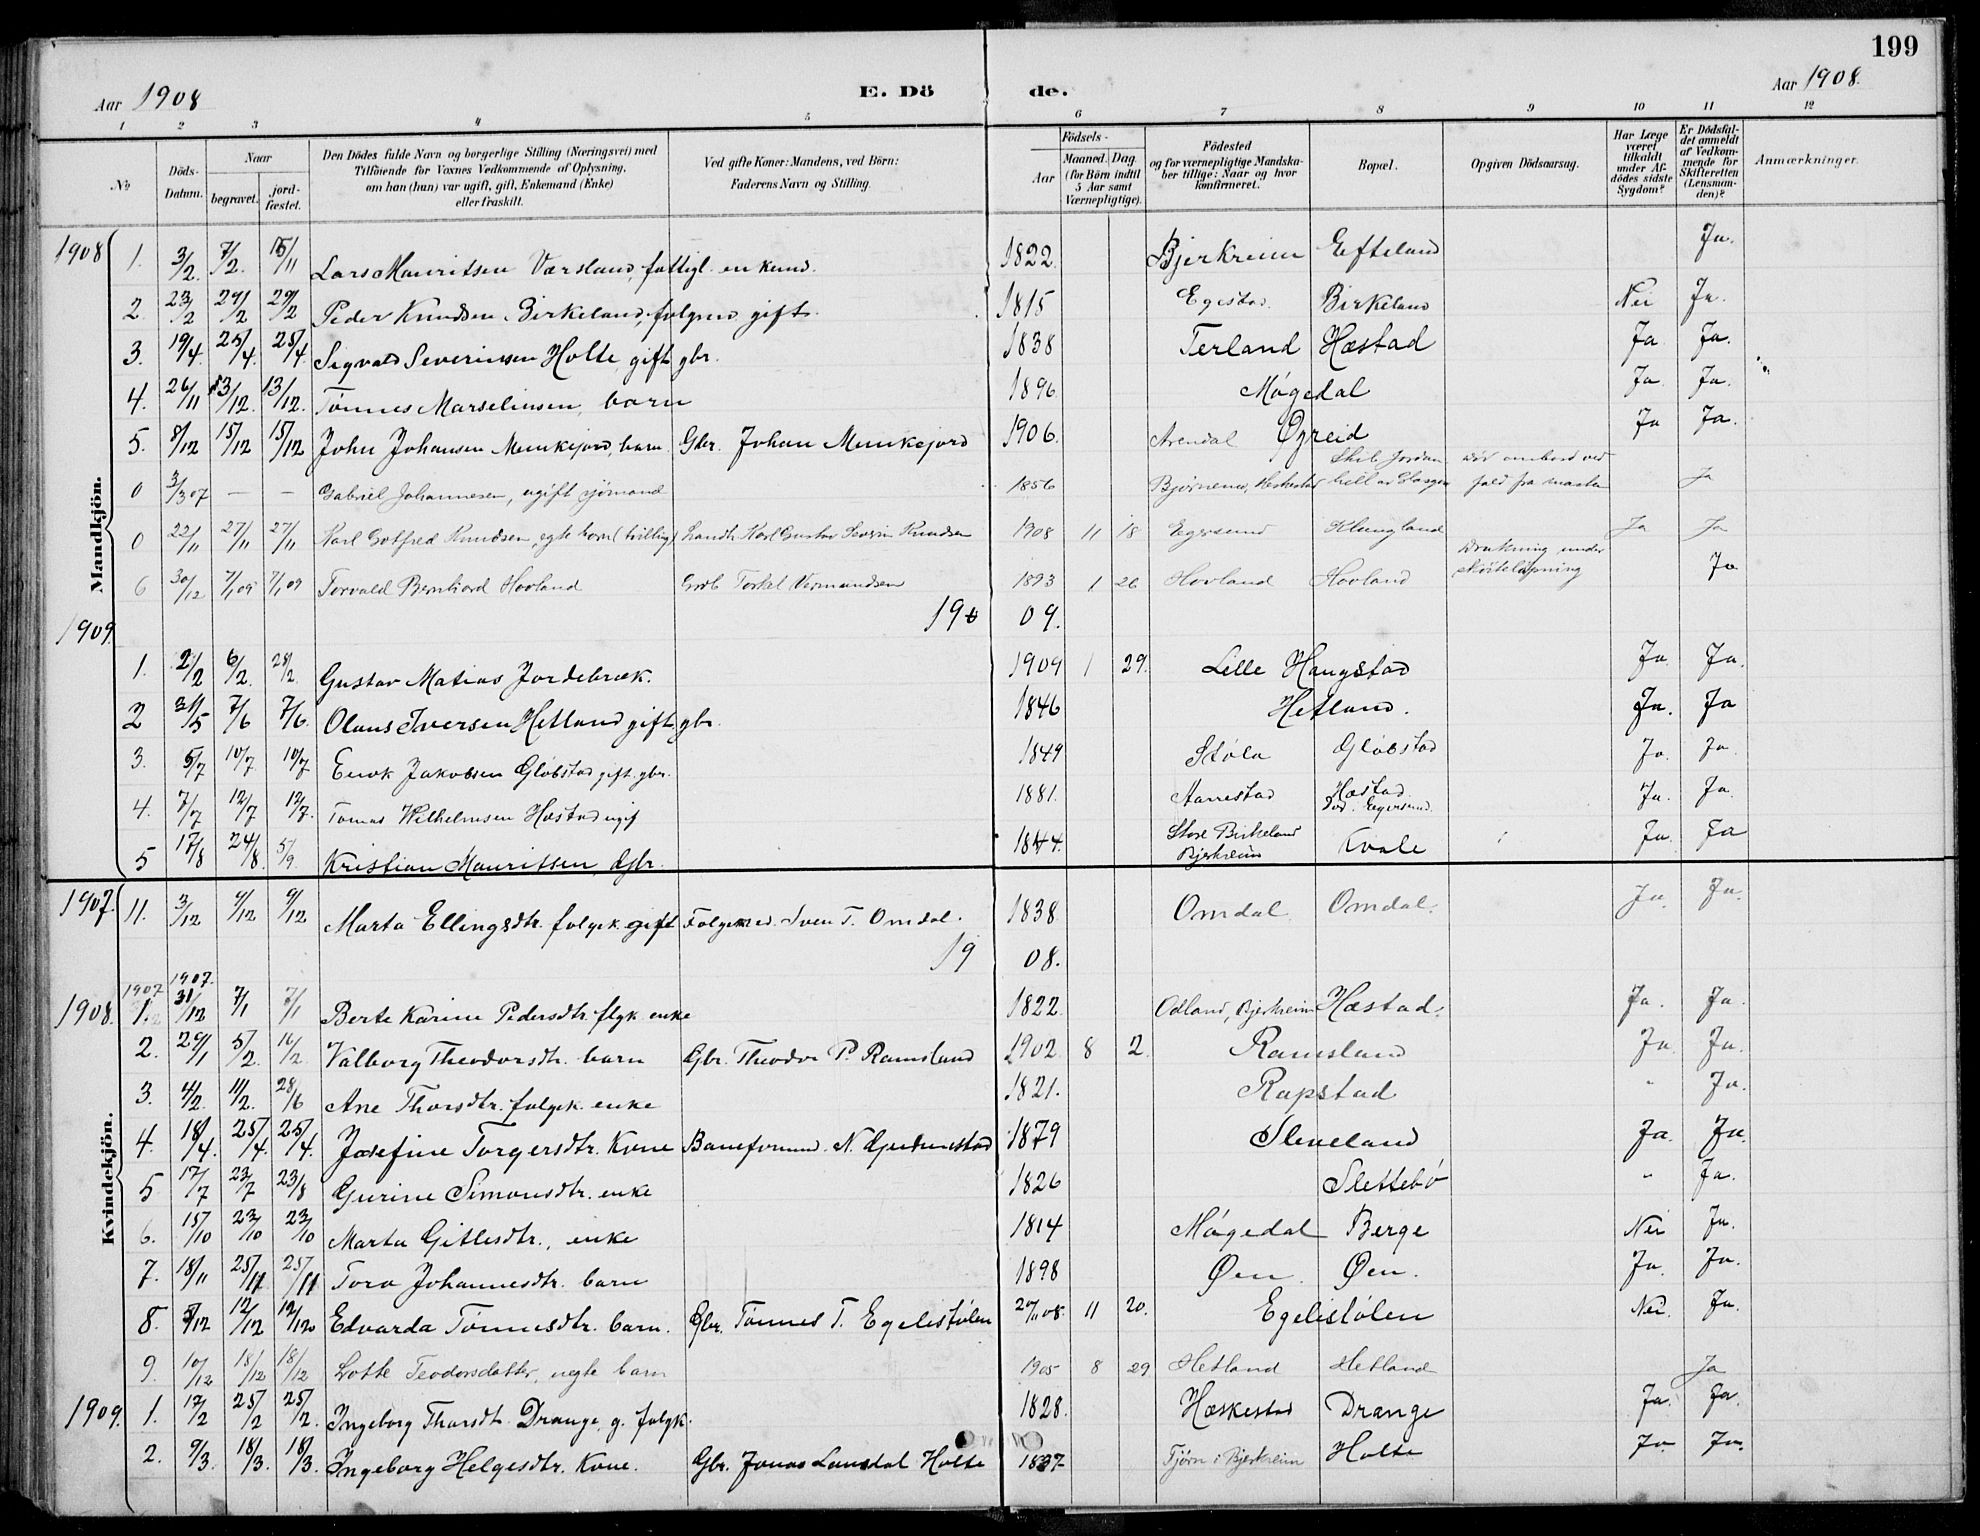 199
Aar 1908 E. Dö de. Aar 1908.
1 2 3 4 5 6 7 8 9 10 11 12
№ Döds-Datum. Naar begravet. jord-fæstet. Den Dödes fulde Navn og borgerlige Stilling (Næringsvei) med Tilföiende for Voxnes Vedkommende af Oplysning, om han (hun) var ugift, gift, Enkemand (Enke) eller fraskilt. Ved gifte Koner: Mandens, ved Börn: Faderens Navn og Stilling. Födsels- Aar Maaned. Dag. (for Börn indtil 5 Aar samt Værnepligtige). Födested og for værnepligtige Mandskaber tillige: Naar og hvor konfirmeret. Bopæl. Opgiven Dödsaarsag. Har Læge været tilkaldt under Afdödes sidste Sygdom? Er Dödsfaldet anmeldt af Vedkommende for Skifteretten (Lensmanden)? Anmærkninger.
Mandkjön.
1908 1. 3/2. 7/2. 15/11 Lars MauritsenVærsland, fattigl. enkemd. 1822. Bjerkreim Eefteland Ja.
2. 23/2 29/2 29/2 Peder Knudsen Birkeland, folgmd gift. 1815 Egestad Birkeland Nei Ja.
3. 19/4. 25/4. 25/4. Sigvald Severinsen Holte gift gbr. 1838 Terland Hæstad Ja Ja.
4. 26/11 13/12. 13/12. Tønnes Marselinsen, barn 1896 Møgedal Ja. Ja.
5. 8/12 15/12 15/12 John Johansen Munkejord, barn Gbr. Johan Munkejord 1906. Arendal Øgreid Ja Ja.
0 3/3 07 — — Gabriel Johannesen, ugift sjømand 1856 Bjørnemo, Heskestad Skib Jordan død ombord ved fald fra masten Ja
0 22/11 27/11 27/11 Karl Gotfred Knudsen, egte barn (tvilling) Landh. Karl Gustav Severin Knudsen 1908 11 18 Egersund Klungland Ja Ja
6 30/12 7/1 09 7/1 09 Torvald Bernhard Hovland Grdb Torkel Vermundsen 1893 1 26 Hovland Hovland Drukning under skøiteløpning Ja
1909. 19 09.
1. 2/2 6/2. 28/2. Gustav Matias Jordebræk. 1909 1 29. Lille Haugstad Ja. Ja.
2 31/5 7/6 7/6. Olaus Iversen Hetland gift gbr. 1846 Hetland. Ja. Ja
3. 5/7 10/7. 10/7 Enok Jakobsen Gløbstad gift gbr. 1849 Støla Gløbstad Ja. Ja.
4. 7/7 12/7 12/7. Tomas Wilhelmsen Hæstad ugif 1881. Aarrestad Hæstad. Død. Egersund. Ja. Ja.
5 17/8 24/8. 5/9. Kristian Mauritsen, Gbr. 1844. Store Birkeland Bjerkreim Kvale Ja. Ja
Kvindekjön.
1907. 11. 3/12 9/12 9/12 Marta Ellingsdtr. folgek. gift Folgemd. Sven T. Omdal. 1838 Omdal Omdal. Ja. Ja.
19 08.
1908. 1907 1. 1907. 31/12 7/1 7/1 Berte Karine Pedersdtr. flgk. enke 1822. Odland, Bjerkreim Hæstad. Ja. Ja.
2. 29/1 5/2. 16/2. Valborg Theodorsdtr. barn Gbr. Theodor P. Ramsland 1902 8 2. Ramsland Ja. Ja.
3. 4/2. 11/2. 28/6 Ane Thorsdtr. folgek. enke 1821. Rapstad " Ja.
4. 18/4. 25/4. 25/4. Josefine Torgersdtr. Kone Baneformd. N. Gjedrestad 1879 Sleveland Ja. Ja.
5 17/7 23/7 23/8 Gurine Simonsdtr. enke 1826 Slettebø " Ja.
6. 15/10 23/10 23/10 Marta Gitlesdtr., enke 1814 Møgedal Berge Nei Ja.
7. 18/11 25/11 25/11 Tora Johannesdtr. barn 1898 Øen. Øen. Ja. Ja.
8. 5/12 12/12 12/12 Edvarda Tønnesdtr. barn. Gbr. Tønnes T. Egelistølen 20/11 08. 11 20. Egelistølen Nei. Ja.
9. 10/12 18/12 18/12 Lotte Teodorsdatter, uegte barn 1905 8 29 Hetland Hetland Ja
1909. 1. 17/2 25/2 25/2. Ingeborg Thorsdt. Drange, g. folgk. 1828. Hæskestad Drange Ja. Ja.
2. 9/3. 18/3. 18/3. Ingeborg Helgesdtr. Kone. Gbr. Jonas Lomdal Holte 1837 Tjørn i Bjerkreim Holte Ja Ja.